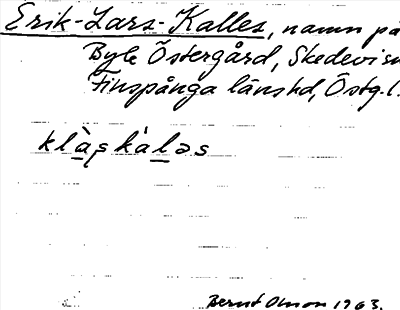 Erik-Lars-Kalles, namn på
Byle Östergård, Skedevi sn
Finspånga länshd, Östg.l.
klàʂkàləs
Bernt Olsson 1963.